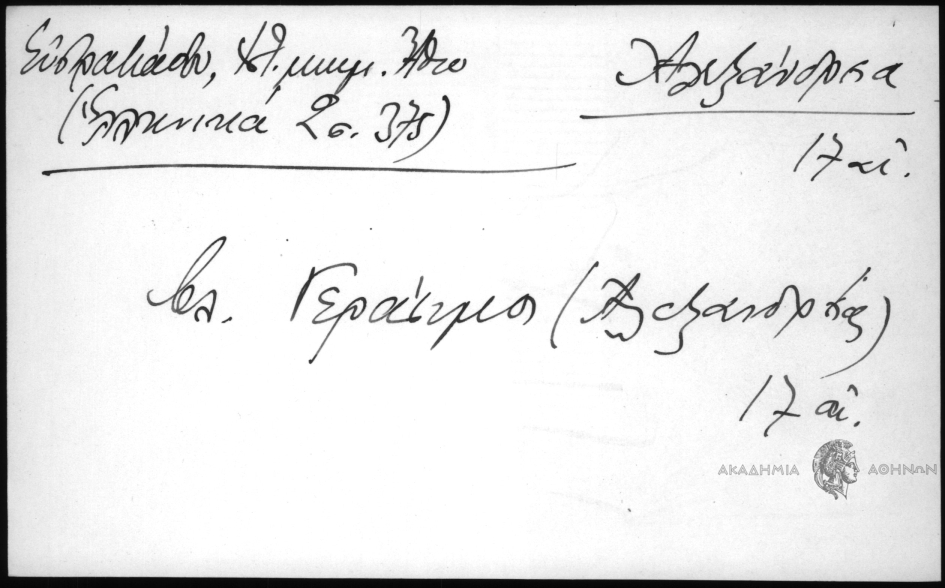 Εὐστρατιάδου, Ἁγ. μνημ. Ἄθω
(Ἑλληνικά 2 σ. 375)
Ἀλεξάνδρεια
17 αἰ.
βλ. Γεράσιμος (Ἀλεξανδρείας)
17 αἰ.
ΑΚΑΔΗΜΙΑ ΑΘΗΝΩΝ